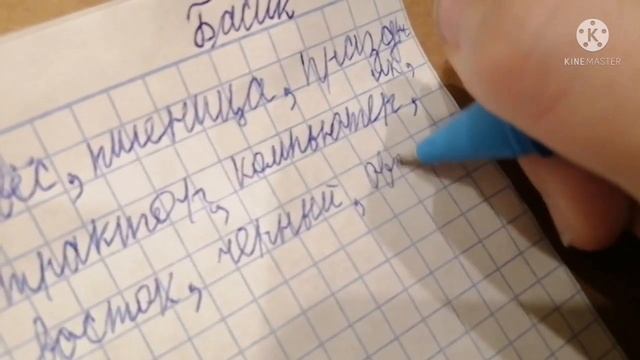 Басик
вёс, пшеница, праздн
ик,
трактор, компьютер,
восток, черный,
K
KINEMASTER